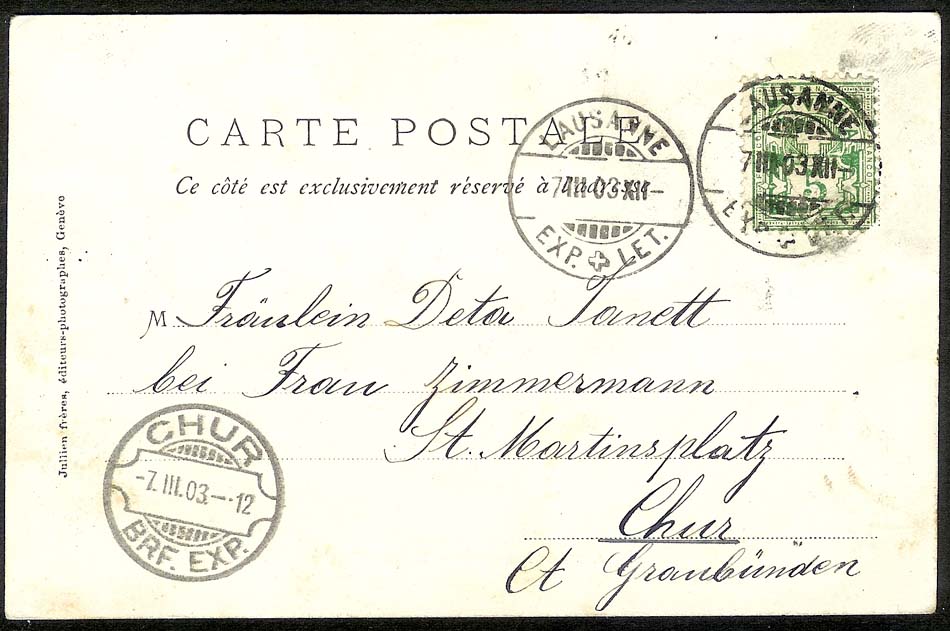 CARTE POSTALE
Ce côté est exclusivement réservé à l'adresse
LAUSANNE
7 III 03 XII-
EXP. LET.
LAUSANNE
7 III 03 XII-
Jullien frères, éditeurs-photographes, Genève
M Fräulein Deta Tanett
bei Frau Zimmermann
St. Martinsplatz
Chur
Ct Graubünden
CHUR
-7. III. 03.--12
BRF. EXP.